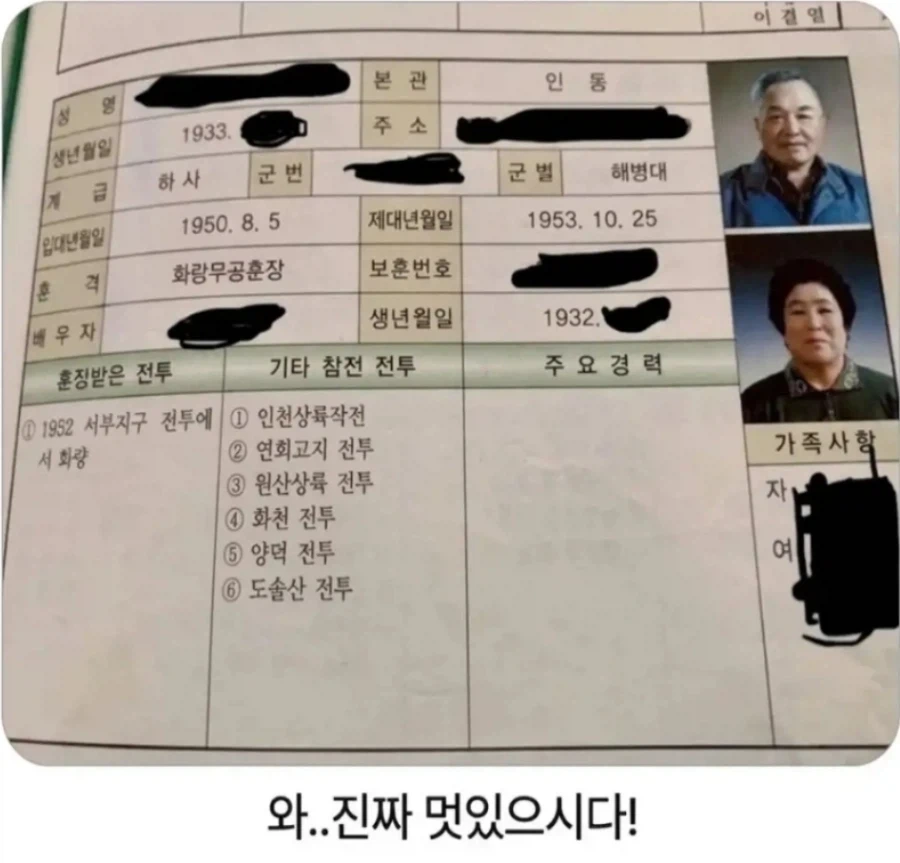 이결열
성 명 본 관 인 동
생년월일 1933. 주 소
계 급 하사 군번 군별 해병대
입대년월일 1950. 8. 5 제대년월일 1953. 10. 25
훈 격 화랑무공훈장 보훈번호
배우자 생년월일 1932.
훈징받은 전투 기타 참전 전투 주요경력
① 1952 서부지구 전투에
서 화랑
① 인천상륙작전
② 연희고지 전투
③ 원산상륙 전투
④ 화천 전투
⑤ 양덕 전투
⑥ 도솔산 전투
가족사항
자
여
와..진짜 멋있으시다!